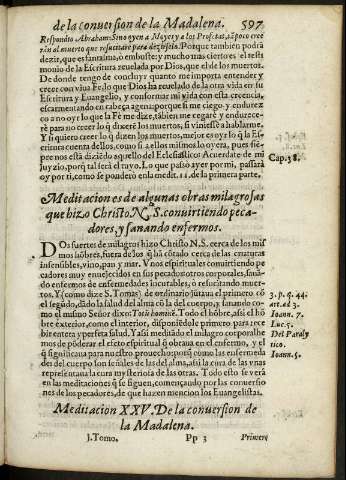 de la conuersion de la Madalena. 597
Respondio Abraham: Sino oyen a Moyses y a los Profetas, tãpoco cree
rán al muerto que resuscitare para dezirselo. Porque tambien podrá
dezir, que es fantasma, o embuste; y mucho mas cierto es el testi
monio de la Escritura reuelada por Dios, que el de los muertos.
De donde tengo de concluyr quanto me importa entender y
crecer con viua Fe, lo que Dios ha reuelado de la otra vida en su
Escritura y Euangelio, y conformar mi vida con esta creencia,
escarmentando en cabeça agena: porque si me ciego, y endurez
co a no oyr lo que la Fè me dize, tãbien me cegarè y endurece-
rè para no creer lo q̃ dixerẽ los muertos, si viniessẽ a hablarme.
Y si quiero creer lo q̃ dizen los muertos, mejor es oyr lo q̃ la Es
critura cuenta dellos, como si a ellos mismos lo oyera, pues siẽ-
pre nos està diziẽdo aquello del Eclesiastico: Acuerdate de mi
Cap. 38.
juyzio, porq̃ tal serà el tuyo. Lo que passò ayer por mi, passarà
oy por ti, como se ponderò en la medit. 11. de la primera parte.
Meditaciones de algunas obras milagrosas
que hizo Christo N. S. conuirtiendo peca-
dores, y sanando enfermos.
DOs suertes de milagros hizo Christo N. S. cerca de los mis
mos hõbres, fuera de los q̃ hã tocado cerca de las criaturas
insensibles, vino, pan, y mar. Vnos espirituales conuirtiendo pe
cadores muy enuejecidos en sus pecados: otros corporales, sanã-
do enfermos de enfermedades incurables, o resucitando muer-
tos. Y (como dize S. Tomas) de ordinario juntaua el primero cõ
3. p. q. 44.
el segundo, dãdo la salud del alma cõ la del cuerpo, y sanando co-
art. ad 3.
mo el mismo Señor dixo: Totũ hominẽ. Todo el hõbre, assi el hõ
Ioann. 7.
bre exterior, como el interior, disponiẽdole primero para rece
Luc. 5.
bir entera y perfeta salud. Y assi mediãdo el milagro corporal he
Del Paraly
mos de põderar el efeto espiritual q̃ obraua en el enfermo, y el
tico.
q̃ significaua para nuestro prouecho; porq̃ como las enfermeda
Ioann. 5.
des del cuerpo son señales de las del alma, assi la cura de las vnas
representaua la cura mysteriosa de las otras. Todo esto se verà
en las meditaciones q̃ se siguen, començando por las conuersio
nes de los pecadores, de que hazen mencion los Euangelistas.
Meditacion XXV. De la conuersion de
la Madalena.
I. Tomo. Pp 3 Primere